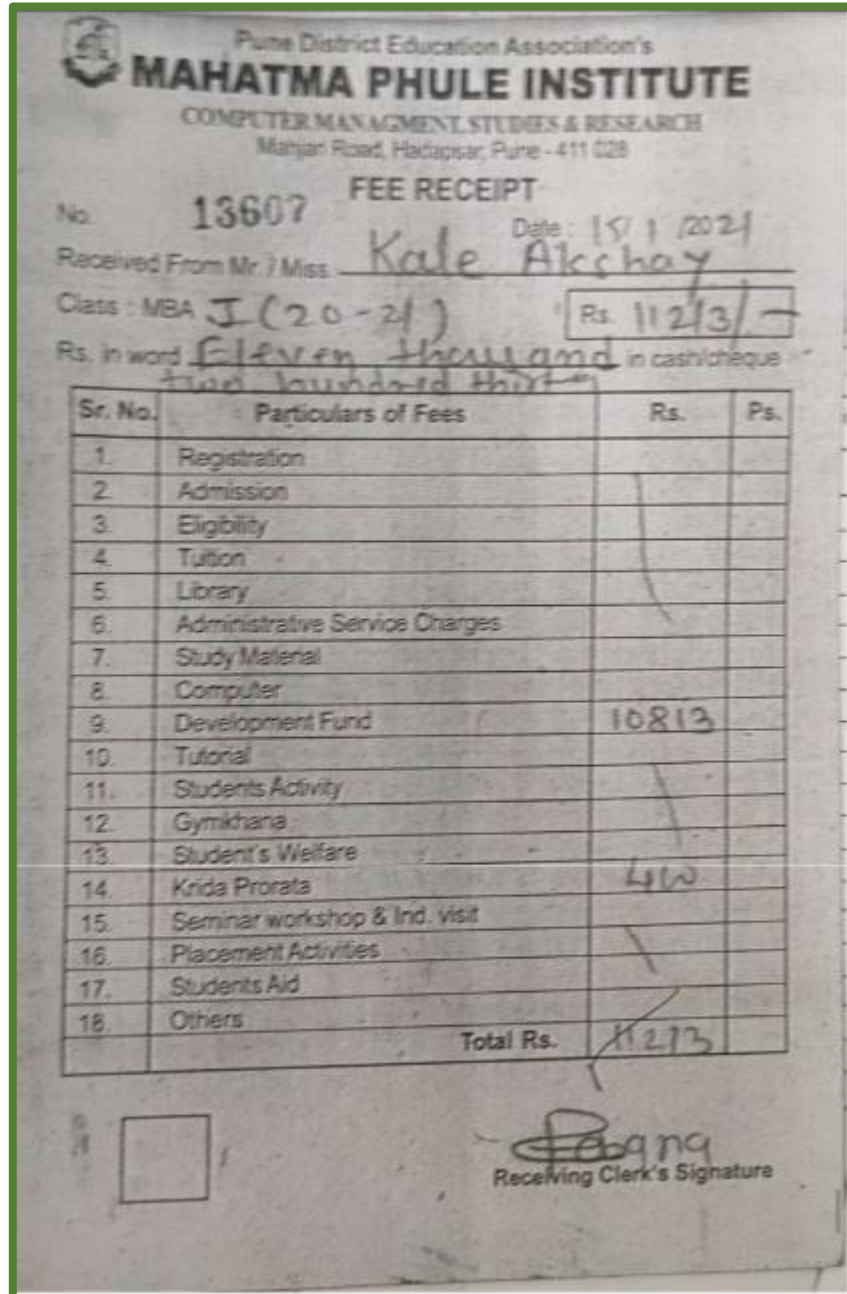 Pune District Education Association's
MAHATMA PHULE INSTITUTE
COMPUTER MANAGMENT, STUDIES & RESEARCH
Manjari Road, Hadapsar, Pune - 411 028
FEE RECEIPT
No. 13607
Date : 15/1/2021
Received From Mr. / Miss. Kale Akshay
Class : MBA I (20-21) Rs. 11213/-
Rs. in word Eleven thousand in cash/cheque
two hundred
Sr. No. Particulars of Fees Rs. Ps.
1. Registration
2. Admission
3. Eligibility
4. Tution
5. Library
6. Administrative Service Charges
7. Study Material
8. Computer
9. Development Fund 10813
10. Tutorial
11. Students Activity
12. Gymkhana
13. Student's Welfare
14. Krida Prorata 400
15. Seminar workshop & Ind. visit
16. Placement Activities
17. Students Aid
18. Others
Total Rs. 11213
Receiving Clerk's Signature